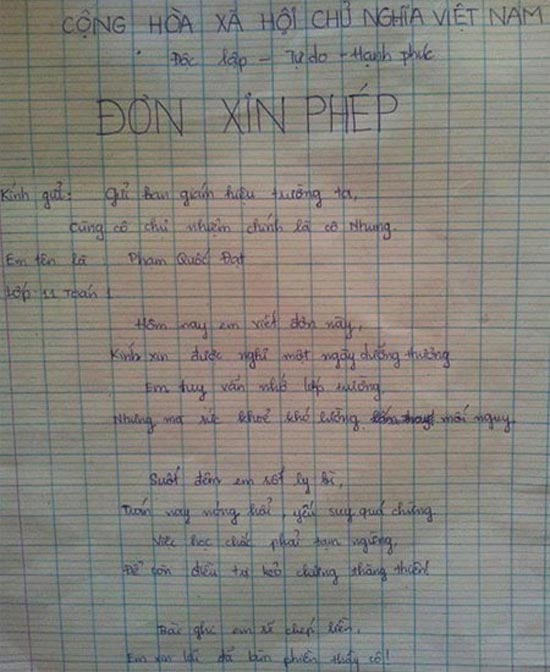 CỘNG HÒA XÃ HỘI CHỦ NGHĨA VIỆT NAM
Độc lập - Tự do - Hạnh phúc
ĐƠN XIN PHÉP
Kính gửi: Gửi ban giám hiệu trường ta,
Cùng cô chủ nhiệm chính là cô Nhung.
Em tên là Phạm Quốc Đạt
Lớp 11 Toán 1
Hôm nay em viết đơn này,
Kính xin được nghỉ một ngày dưỡng thương
Em tuy vẫn nhớ lớp trường
Nhưng mà sức khoẻ khó lường mối nguy
Suốt đêm em sốt ly bì,
Trán nay nóng hổi, yếu suy quá chừng
Việc học chắc phải tạm ngừng,
Để còn điều trị kẻo chừng thăng thiên!
Bài ghi em sẽ chép liền,
Em xin lỗi đã làm phiền thầy cô!